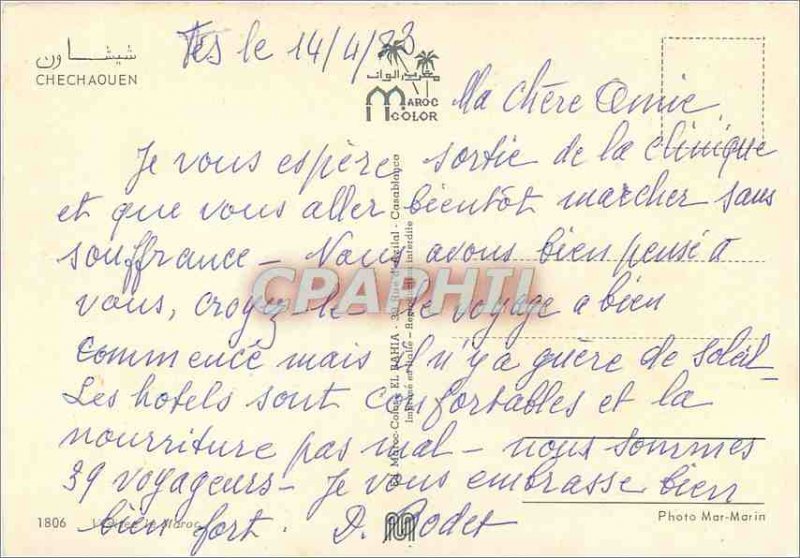 شيشاون
CHECHAOUEN
Fes le 14/4/83
مغرب الوان
MAROC
COLOR
Ma chère Amie,
Je vous espère sortie de la clinique
et que vous aller bientôt marcher sans
souffrance - Nous avons bien pensé à
vous, croyez-le - Le voyage a bien
commencé mais il n'y a guère de soleil -
Les hotels sont confortables et la
nourriture pas mal - nous sommes
39 voyageurs - Je vous embrasse bien
bien fort. D. Bodet
CPAPHIL
Maroc-Color EL BAHIA - Rue d'Agilal - Casablanca
Imprimé en Italie - Reproduction interdite
1806
Maroc
Photo Mar-Marin